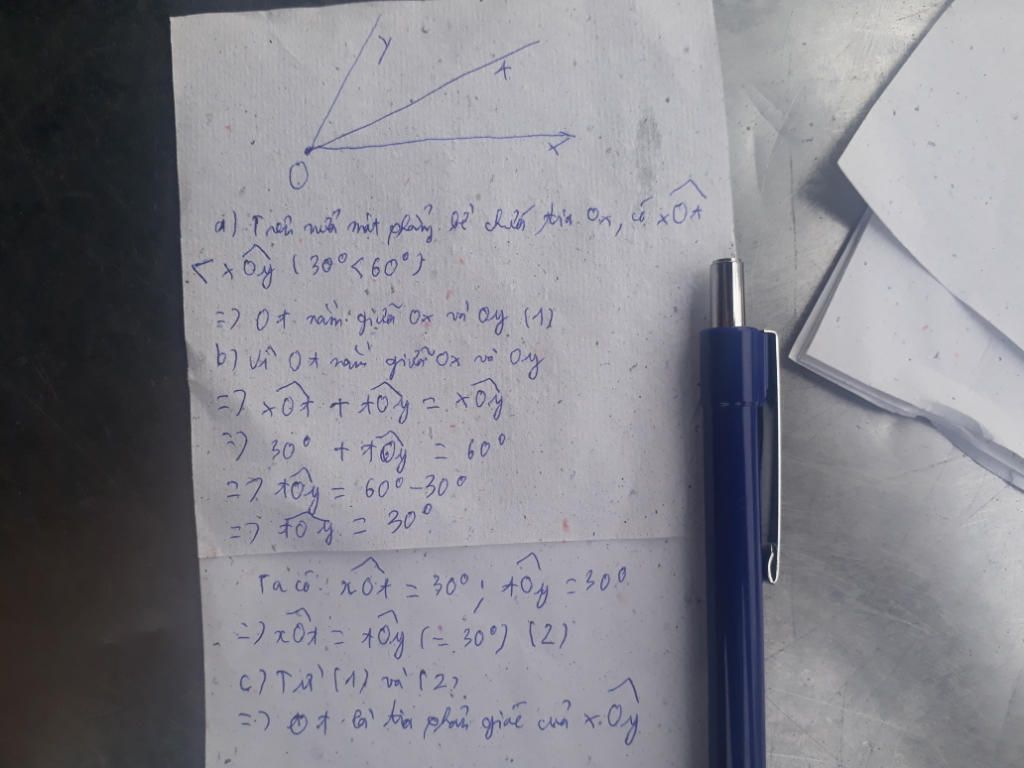 y
t
x
O
a) Trên nửa mặt phẳng bờ chứa tia Ox, có xOt
< xOy (30° < 60°)
=> Ot nằm giữa Ox và Oy (1)
b) Vì Ot nằm giữa Ox và Oy
=> xOt + tOy = xOy
=> 30° + tOy = 60°
=> tOy = 60° - 30°
=> tOy = 30°
Ta có: xOt = 30°; tOy = 30°
=> xOt = tOy (= 30°) (2)
c) Từ (1) và (2)
=> Ot là tia phân giác của xOy